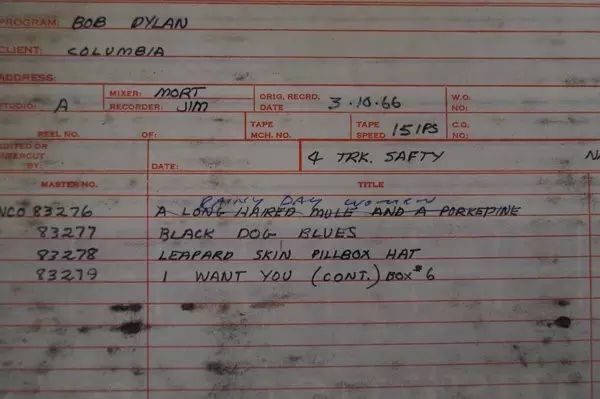 PROGRAM: BOB DYLAN
CLIENT: COLUMBIA
ADDRESS:
STUDIO: A MIXER: MORT ORIG. RECRD. DATE 3-10-66 W.O. NO:
RECORDER: JIM
REEL NO. OF: TAPE MCH. NO. TAPE SPEED 15 IPS C.O. NO:
EDITED OR
BY: DATE: 4 TRK. SAFTY
MASTER NO. TITLE
RAINY DAY WOMEN
NCO 83276 A LONG HAIRED MULE AND A PORKEPINE
83277 BLACK DOG BLUES
83278 LEAPARD SKIN PILLBOX HAT
83279 I WANT YOU (CONT.) BOX #6